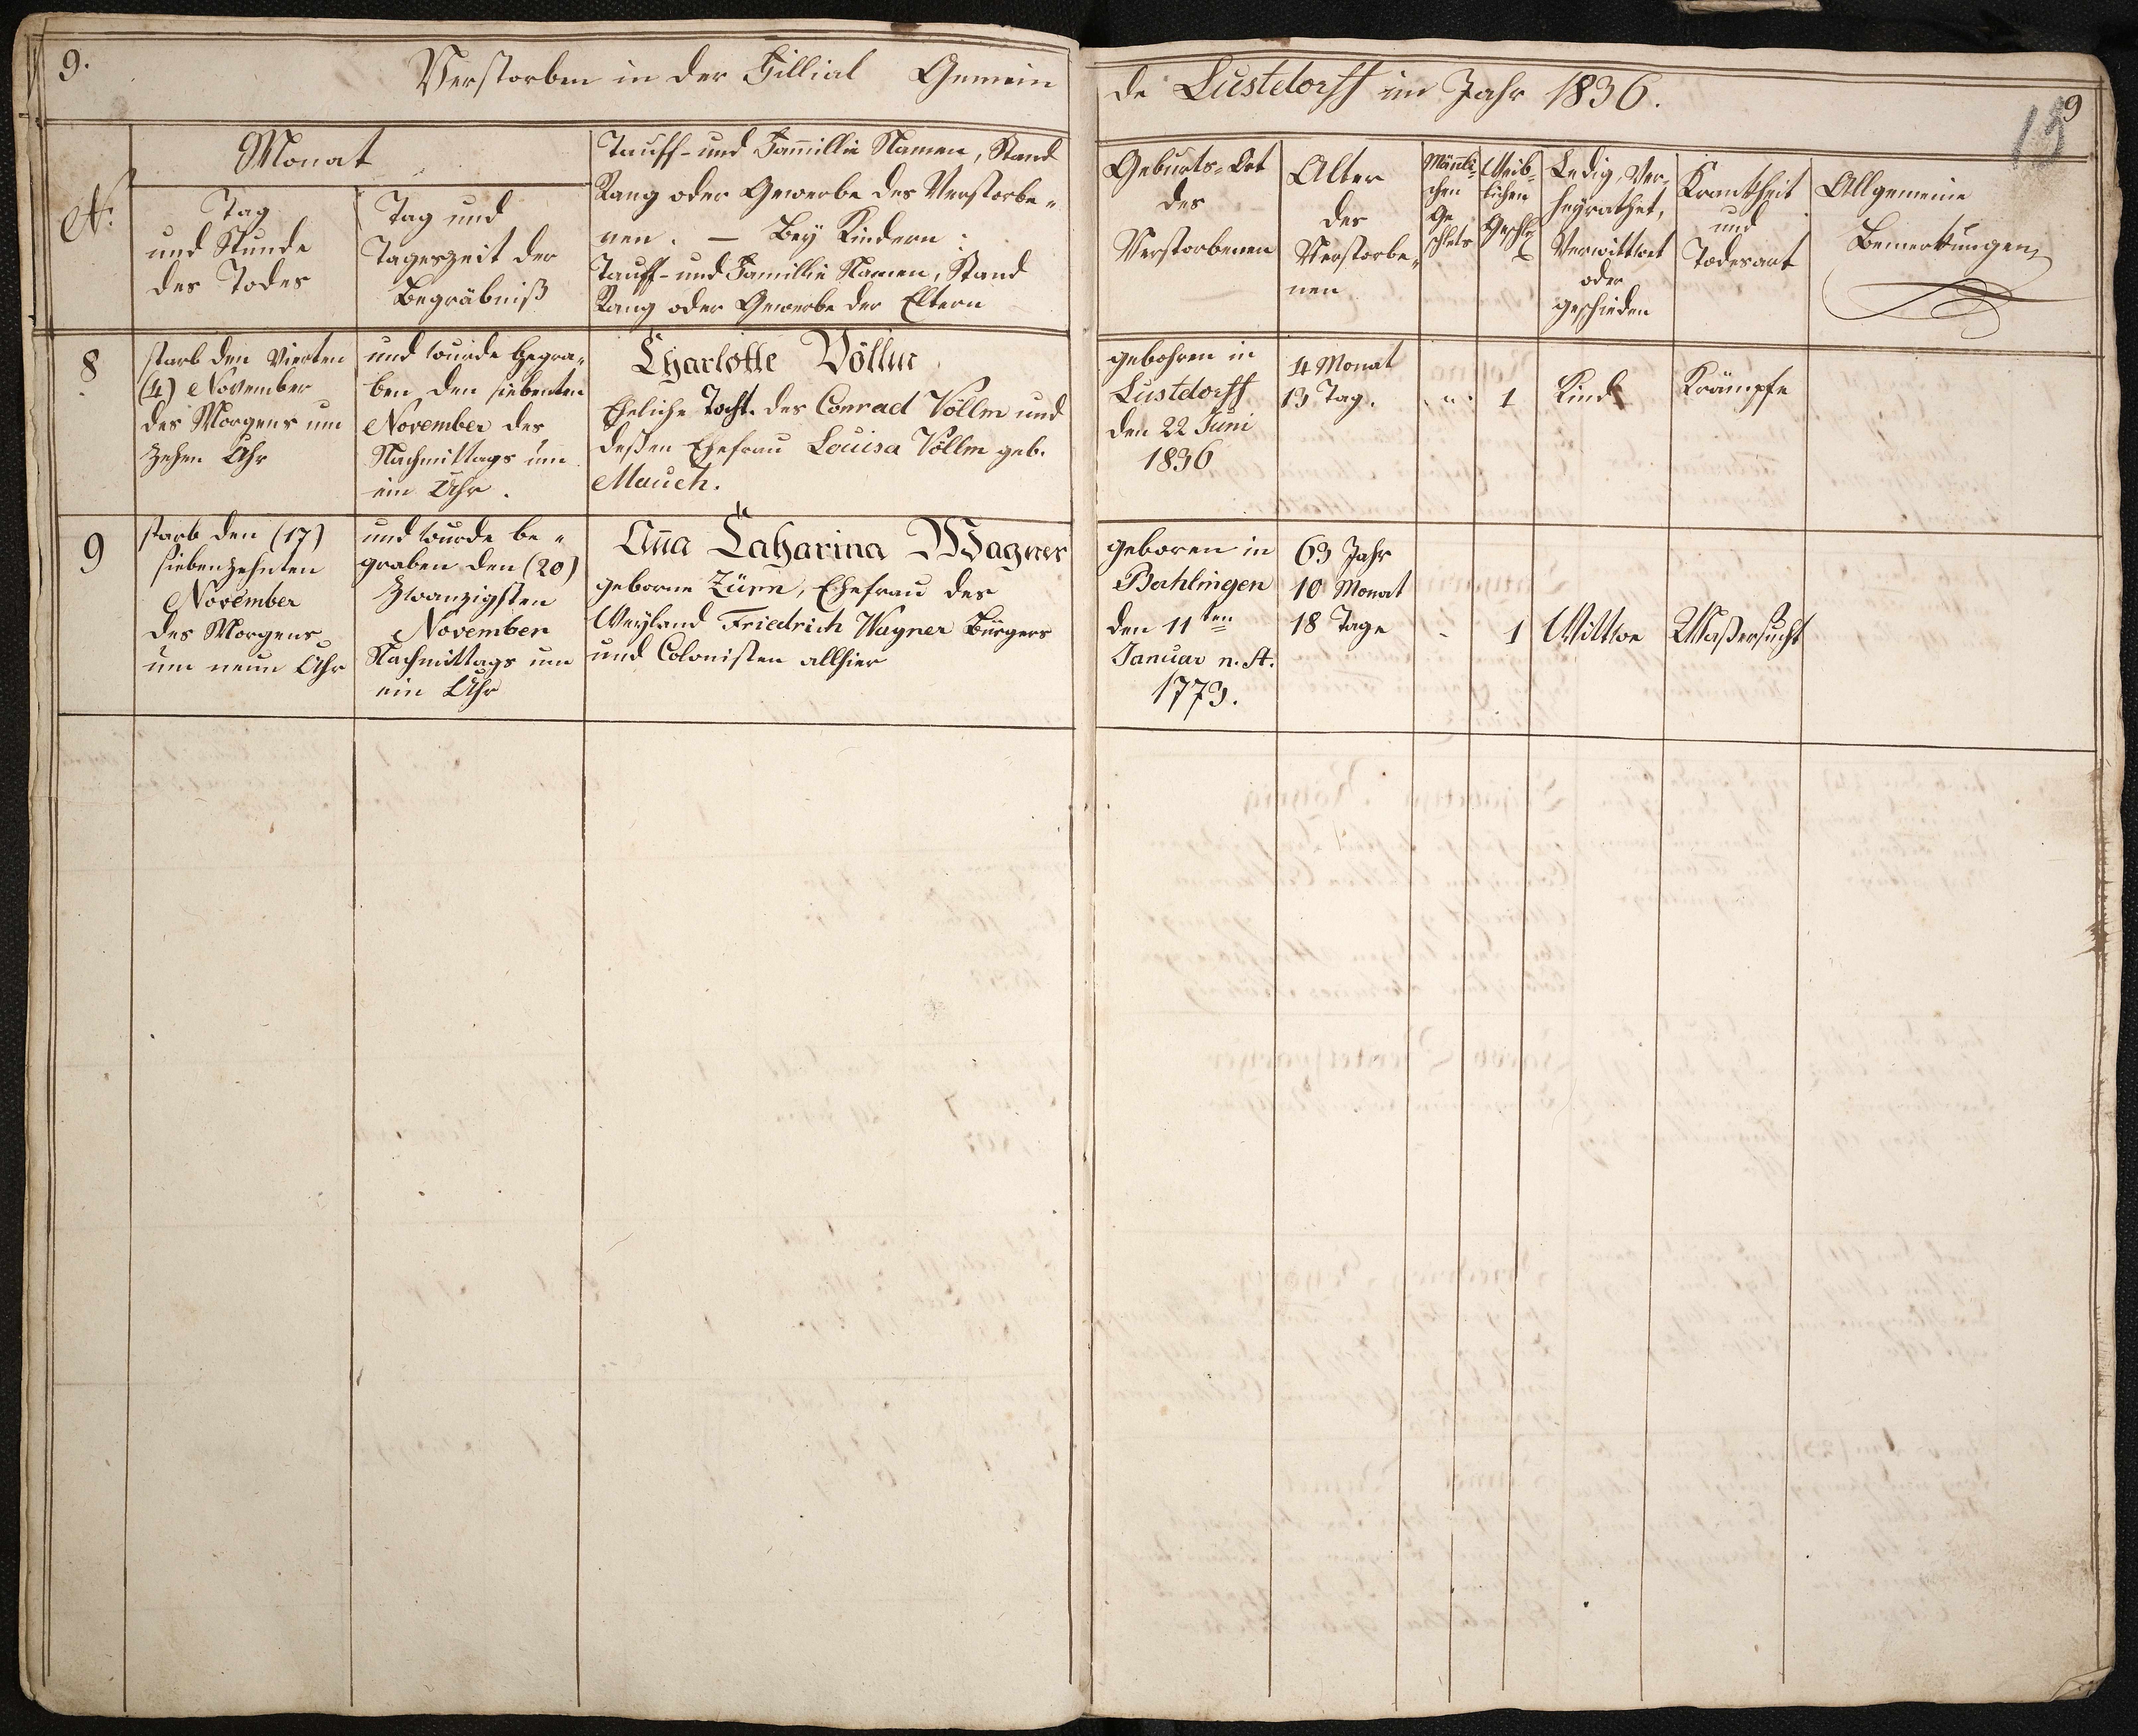 9.
Verstorben in der Fillial Gemein
de Lustdorff im Jahr 1836.
9
13
N:
Monat
Tag
und Stunde
des Todes
Tag und
Tageszeit der
Begräbniß
Tauff- und Fammillie Namen, Stand
Rang oder Gewerbe des Verstorbe-
nen. — Bey Kindern:
Tauff- und Famillie Namen, Stand
Rang oder Gewerbe der Eltern
Geburts-Ort
des
Verstorbenen
Alter
des
Verstorbe-
nen
Männli-
chen
Ge
schlets
Weib-
lichen
Geschl
Ledig, Ver-
heyrathet,
Verwittwet
oder
geschieden
Krankheit
und
Todesart
Allgemeine
Bemerkungen
8
starb den Vierten
(4) November
des Morgens um
zehen Uhr
und wurde begra-
ben den siebenten
November des
Nachmittags um
ein Uhr.
Charlotte Völlm
Eheliche Tocht. des Conrad Völlm und
deßen Ehefrau Louisa Völlm geb.
Mauch.
gebohren in
Lustdorff
den 22 Juni
1836
4 Monat
13 Tag.
"
1
Kind
Krämpfe
9
starb den (17)
siebenzehnten
November
des Morgens
um neun Uhr
und wurde be-
graben den (20)
zwanzigsten
November
Nachmittags um
ein Uhr
Aña Catharina Wagner
geborne Zürn, Ehefrau des
Weyland Friedrich Wagner Bürgers
und Colonisten allhier
geboren in
Bahlingen
den 11ten
Januar n. St.
1773.
63 Jahr
10 Monat
18 Tage
-
1
Wittwe
Waßersucht